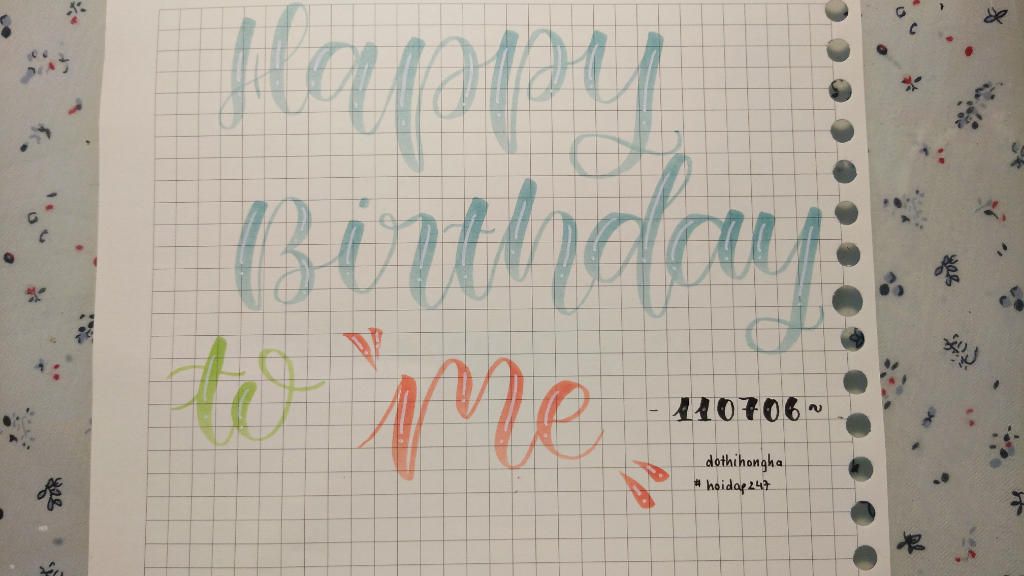 Happy
Birthday
to Me
- 110706 ~
dothihongha
# hoidap247